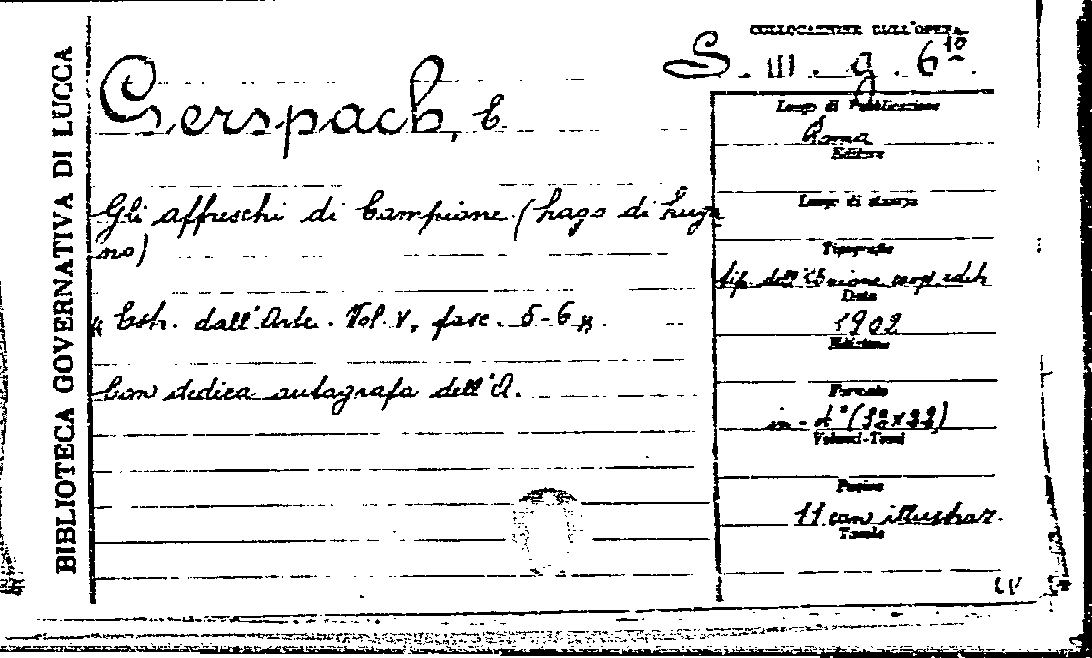 BIBLIOTECA GOVERNATIVA DI LUCCA
COLLOCAZIONE DELL'OPERA
S. III. g. 6¹⁰.
Gerspach, E
Gli affreschi di Campione (Lago di Luga
no)
« Estr. dall'Arte. Vol. V, fasc. 5-6 ».
Con dedica autografa dell'A.
Luogo di Pubblicazione
Roma
Editore
Luogo di stampa
Tipografia
tip. dell'Unione coop. edit.
Data
1902
Edizione
Formato
in-4° (32x22)
Volumi-Tomi
Pagine
11 con illustraz.
Tavole